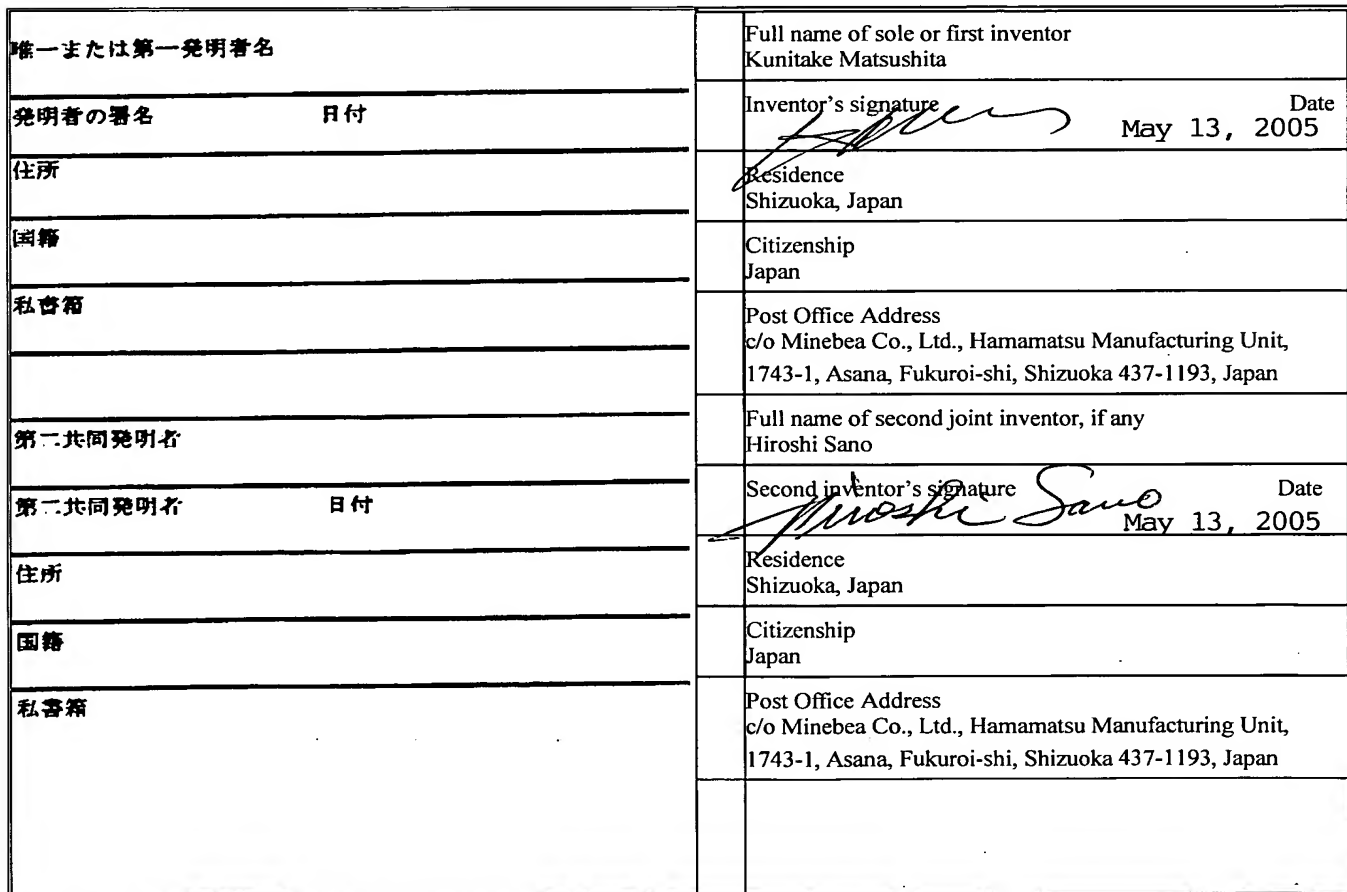 唯一または第一発明者名
Full name of sole or first inventor
Kunitake Matsushita
発明者の署名 日付
Inventor's signature Date
May 13, 2005
住所
Residence
Shizuoka, Japan
国籍
Citizenship
Japan
私書箱
Post Office Address
c/o Minebea Co., Ltd., Hamamatsu Manufacturing Unit,
1743-1, Asana, Fukuroi-shi, Shizuoka 437-1193, Japan
第二共同発明者
Full name of second joint inventor, if any
Hiroshi Sano
第二共同発明者 日付
Second inventor's signature Date
Hiroshi Sano
May 13, 2005
住所
Residence
Shizuoka, Japan
国籍
Citizenship
Japan
私書箱
Post Office Address
c/o Minebea Co., Ltd., Hamamatsu Manufacturing Unit,
1743-1, Asana, Fukuroi-shi, Shizuoka 437-1193, Japan